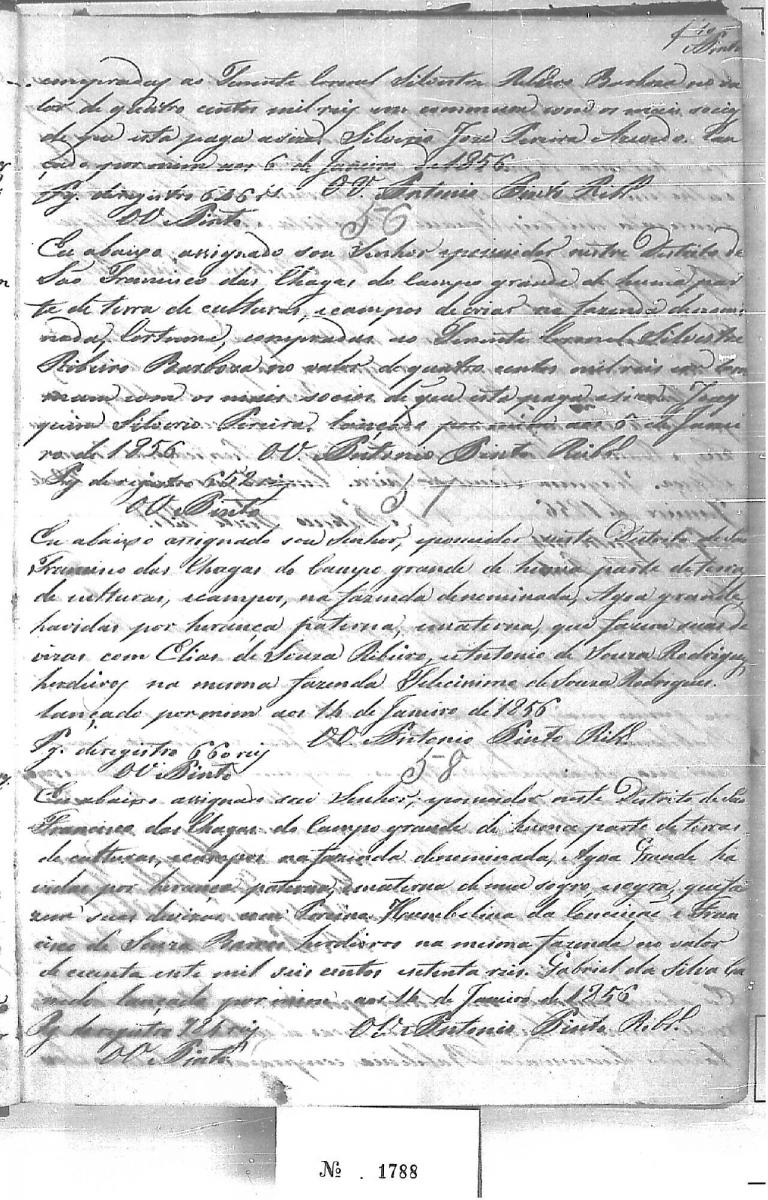 Pinto
compradas ao Tenente Coronel Silvestre Ribeiro Barboza no va
lor de quatro centos mil reis em commum com os mais socios
de que esta paga a siza. Silverio Joze Pereira Azevedo. Lan
çado por mim aos 6 de Janeiro de 1856.
Pg. de registro 646 rs O V. Antonio Pinto Ribr.
O V. Pinto
56
Eu abaixo assignado sou Senhor epossuidor neste Districto de
São Francisco das Chagas do Campo grande de huma par
te de terra de culturas, ecampos de criar na fazenda denomi
nada, compradas ao Tenente Coronel Silvestre
Ribeiro Barboza no valor de quatro centos mil reis em com
mum com os mais socios de que esta paga a siza. Joaq
quina Silverio Pereira, lançado por mim aos 6 de Janei
ro de 1856 O V. Antonio Pinto Ribr.
Pg. de registro 652 reis
O V. Pinto
57
Eu abaixo assignado sou Senhor, epossuidor neste Districto de São
Francisco das Chagas do Campo grande de huma parte de terra
de culturas, ecampos, na fazenda denominada, Agoa grande
havidas por herança paterna, ematerna, que fazem suas de
vizas com Elias de Souza Ribeiro, eAntonio de Souza Rodrigues
herdeiros na mesma fazenda Felicissimo de Souza Rodrigues.
Lançado por mim aos 14 de Janeiro de 1856
Pg. de registro 660 reis O V. Antonio Pinto Ribr.
O V. Pinto
58
Eu abaixo assignado sou Senhor, epossuidor neste Districto de São
Francisco das Chagas do Campo grande de huma parte de terras
de culturas, ecampos na fazenda denominada, Agoa Grande ha
vidas por herança paterna, ematerna de meu sogro, esogra, que fa
zem suas devizas com Humbelina da Conceição e Fran
cisco de Souza herdeiros na mesma fazenda no valor
de cecenta esete mil seis centos esetenta reis. Gabriel da Silva
lançado por mim aos 14 de Janeiro de 1856
Pg. de registro reis O V. Antonio Pinto Ribr.
O V. Pinto
№ . 1788